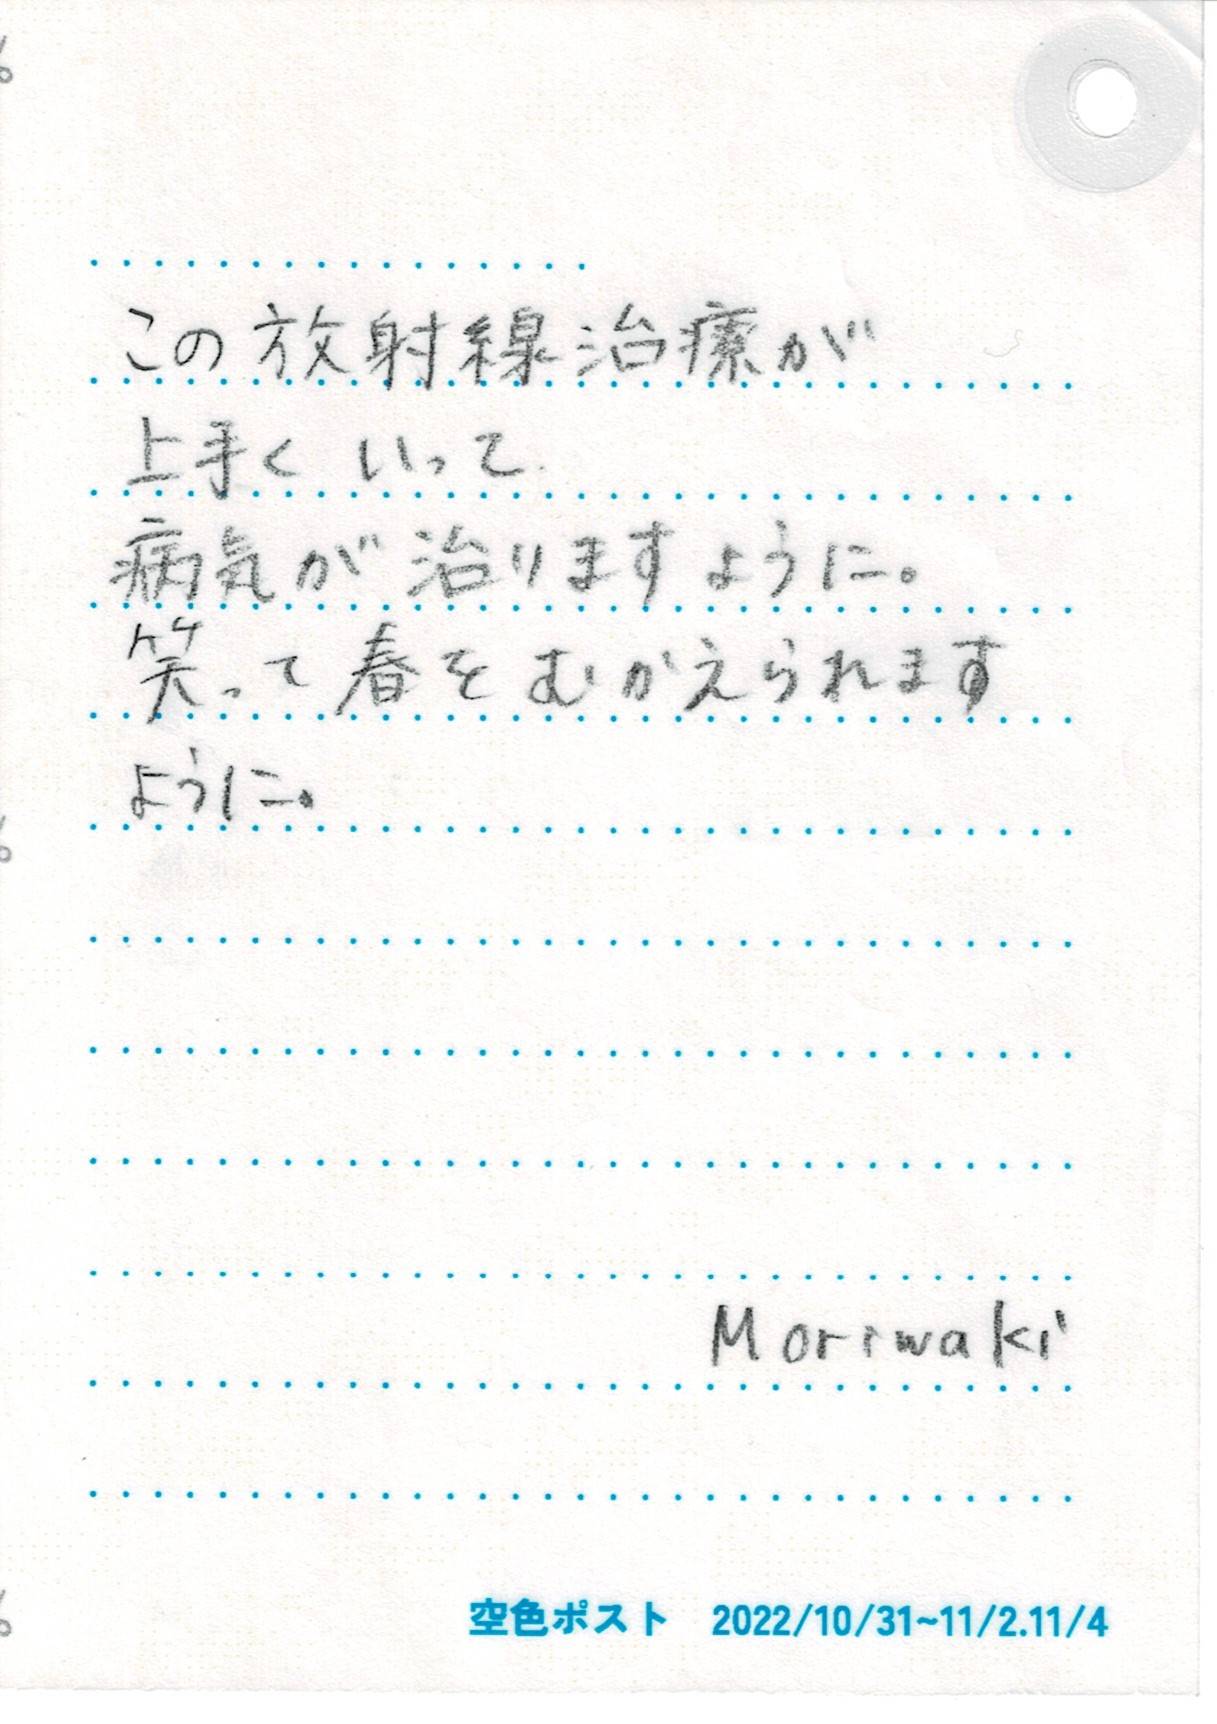 この放射線治療が
上手くいって
病気が治りますように。
笑って春をむかえられます
ように。
Moriwaki
空色ポスト 2022/10/31~11/2.11/4